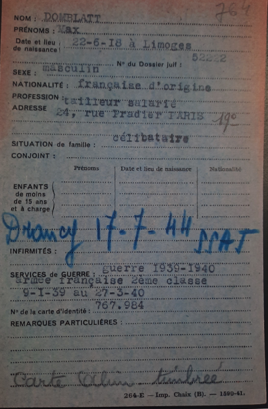 764
NOM : DOMBLATT
PRÉNOMS : Max
Date et lieu de naissance : 22-6-18 à Limoges
N° du Dossier juif : 52222
SEXE : masculin
NATIONALITÉ : française d'origine
PROFESSION : tailleur salarié
ADRESSE 24, rue Pradier PARIS 19°
SITUATION de famille : célibataire
CONJOINT :
Prénoms Date et lieu de naissance Nationalité
ENFANTS
de moins
de 15 ans
et à charge
Drancy 17-7-44 SSAT
INFIRMITÉS :
SERVICES de GUERRE : guerre 1939-1940
armée française 2ème classe
9-1-39 au 27-3-40
N° de la carte d'identité : 767.984
REMARQUES PARTICULIÈRES :
Carte timbrée
264-E — Imp. Chaix (B). — 1599-41.